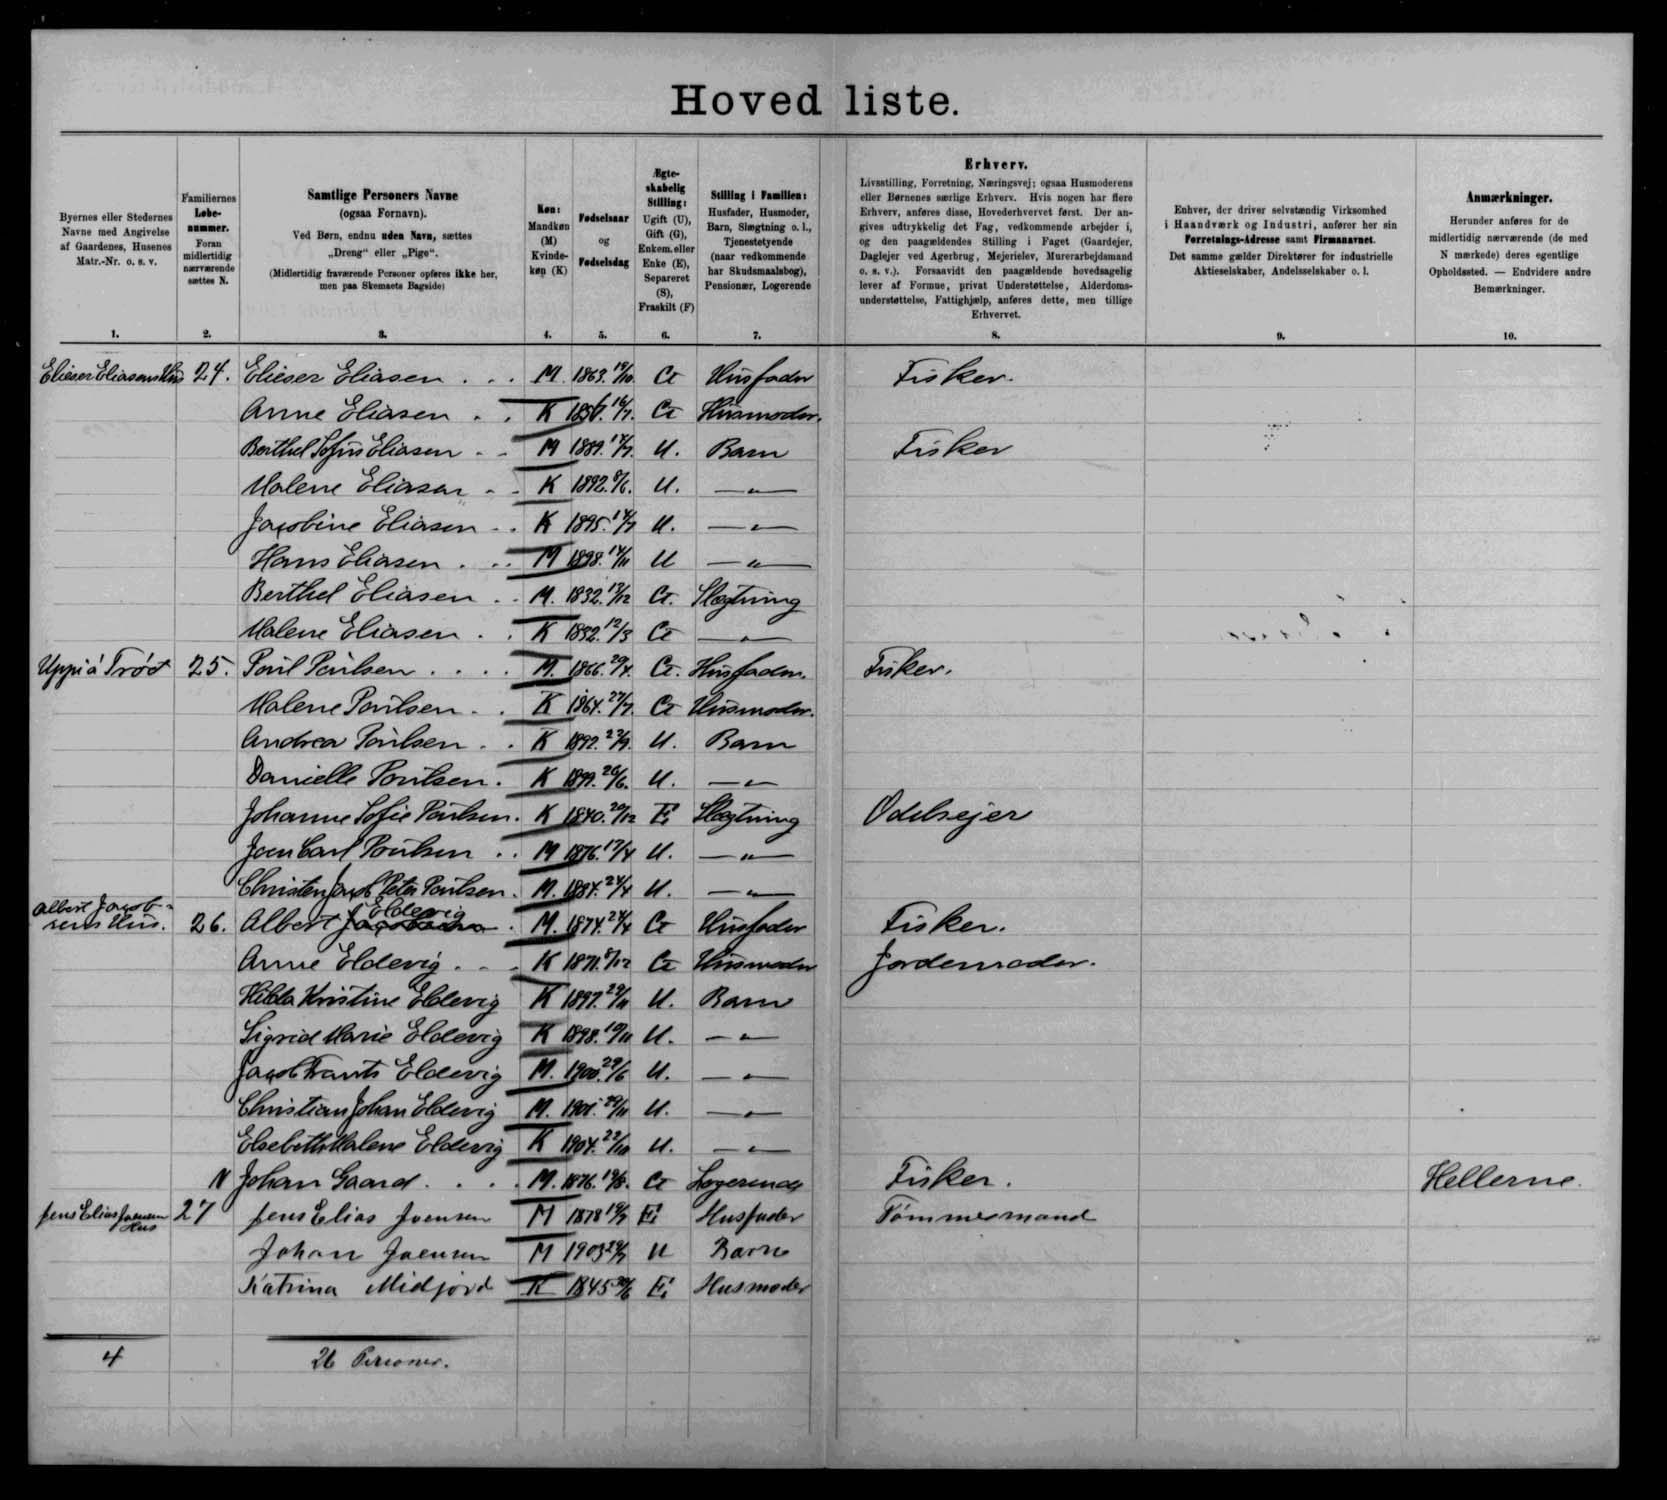 Hoved liste.
Byernes eller Stedernes
Navne med Angivelse
af Gaardenes, Husenes
Matr.-Nr. o. s. v.
1.
Familiernes
Løbe-
nummer.
Foran
midlertidig
nærværende
sættes N.
2.
Samtlige Personers Navne
(ogsaa Fornavn).
Ved Børn, endnu uden Navn, sættes
„Dreng“ eller „Pige“.
(Midlertidig fraværende Personer opføres ikke her,
men paa Skemaets Bagside)
3.
Køn:
Mandkøn
(M)
Kvinde-
køn (K)
4.
Fødselsaar
og
Fødselsdag
5.
Ægte-
skabelig
Stilling:
Ugift (U),
Gift (G),
Enkem. eller
Enke (E),
Separeret
(S),
Fraskilt (F)
6.
Stilling i Familien:
Husfader, Husmoder,
Barn, Slægtning o. l.,
Tjenestetyende
(naar vedkommende
har Skudsmaalsbog),
Pensionær, Logerende
7.
Erhverv.
Livsstilling, Forretning, Næringsvej; ogsaa Husmoderens
eller Børnenes særlige Erhverv. Hvis nogen har flere
Erhverv, anføres disse, Hovederhvervet først. Der an-
gives udtrykkelig det Fag, vedkommende arbejder i,
og den paagældendes Stilling i Faget (Gaardejer,
Daglejer ved Agerbrug, Mejerielev, Murerarbejdsmand
o. s. v.). Forsaavidt den paagældende hovedsagelig
lever af Formue, privat Understøttelse, Alderdoms-
understøttelse, Fattighjælp, anføres dette, men tillige
Erhvervet.
8.
Enhver, der driver selvstændig Virksomhed
i Haandværk og Industri, anfører her sin
Forretnings-Adresse samt Firmanavnet.
Det samme gælder Direktører for industrielle
Aktieselskaber, Andelsselskaber o. l.
9.
Anmærkninger.
Herunder anføres for de
midlertidig nærværende (de med
N mærkede) deres egentlige
Opholdssted. — Endvidere andre
Bemærkninger.
10.
Elieser Eliasens Hus 24. Elieser Eliasen . . . M. 1863. 19/10. G Husfader Fisker.
Anne Eliasen . . K 1856. 16/7. G Husmoder.
Berthel Sofus Eliasen . . M 1889. 17/7. U. Barn Fisker
Malene Eliasen . . K 1892. 8/6. U. — " —
Jacobine Eliasen . . K 1895. 14/7 U. — " —
Hans Eliasen . . . M 1898. 14/11 U — " —
Berthel Eliasen . . M. 1832. 13/12 G. Slægtning
Malene Eliasen . . K 1832. 12/3 G — " —
Uppi á Trøð 25. Poul Poulsen . . . . M. 1866. 29/4. G. Husfader. Fisker.
Malene Poulsen . . K 1864. 27/7. G Husmoder.
Andrea Poulsen . . K 1892. 23/9. U. Barn
Danielle Poulsen . K 1899. 26/6. U. — " —
Johanne Sofie Poulsen . K 1840. 20/12 E Slægtning Odelsejer
Joen Carl Poulsen . . M 1876. 17/4 U. — " —
Christen Jacob Peter Poulsen . M. 1884. 24/4 U. — " —
Albert Jacob-
sens Hus. 26. Albert Eldevig . M. 1874. 24/4 G Husfader Fisker.
Anne Eldevig . . . K 1871. 8/12 G Husmoder Jordemoder.
Hilda Kristine Eldevig K 1897. 29/11 U. Barn
Sigrid Marie Eldevig K 1898. 19/11 U. — " —
Jacob Frants Eldevig M. 1900. 29/6 U. — " —
Christian Johan Eldevig M. 1901. 29/11 U. — " —
Elsebeth Malene Eldevig K 1904. 22/10 U. — " —
N Johan Gaard . . . . M. 1876. 19/8. G Logerende Fisker. Hellerne.
Jens Elias Joensens Hus 27 Jens Elias Joensen M 1878 19/7 E Husfader Tømmermand
Johan Joensen M 1903 29/7 U Barn
Katrina Midjord K 1845 30/6 E Husmoder
4 26 Personer.